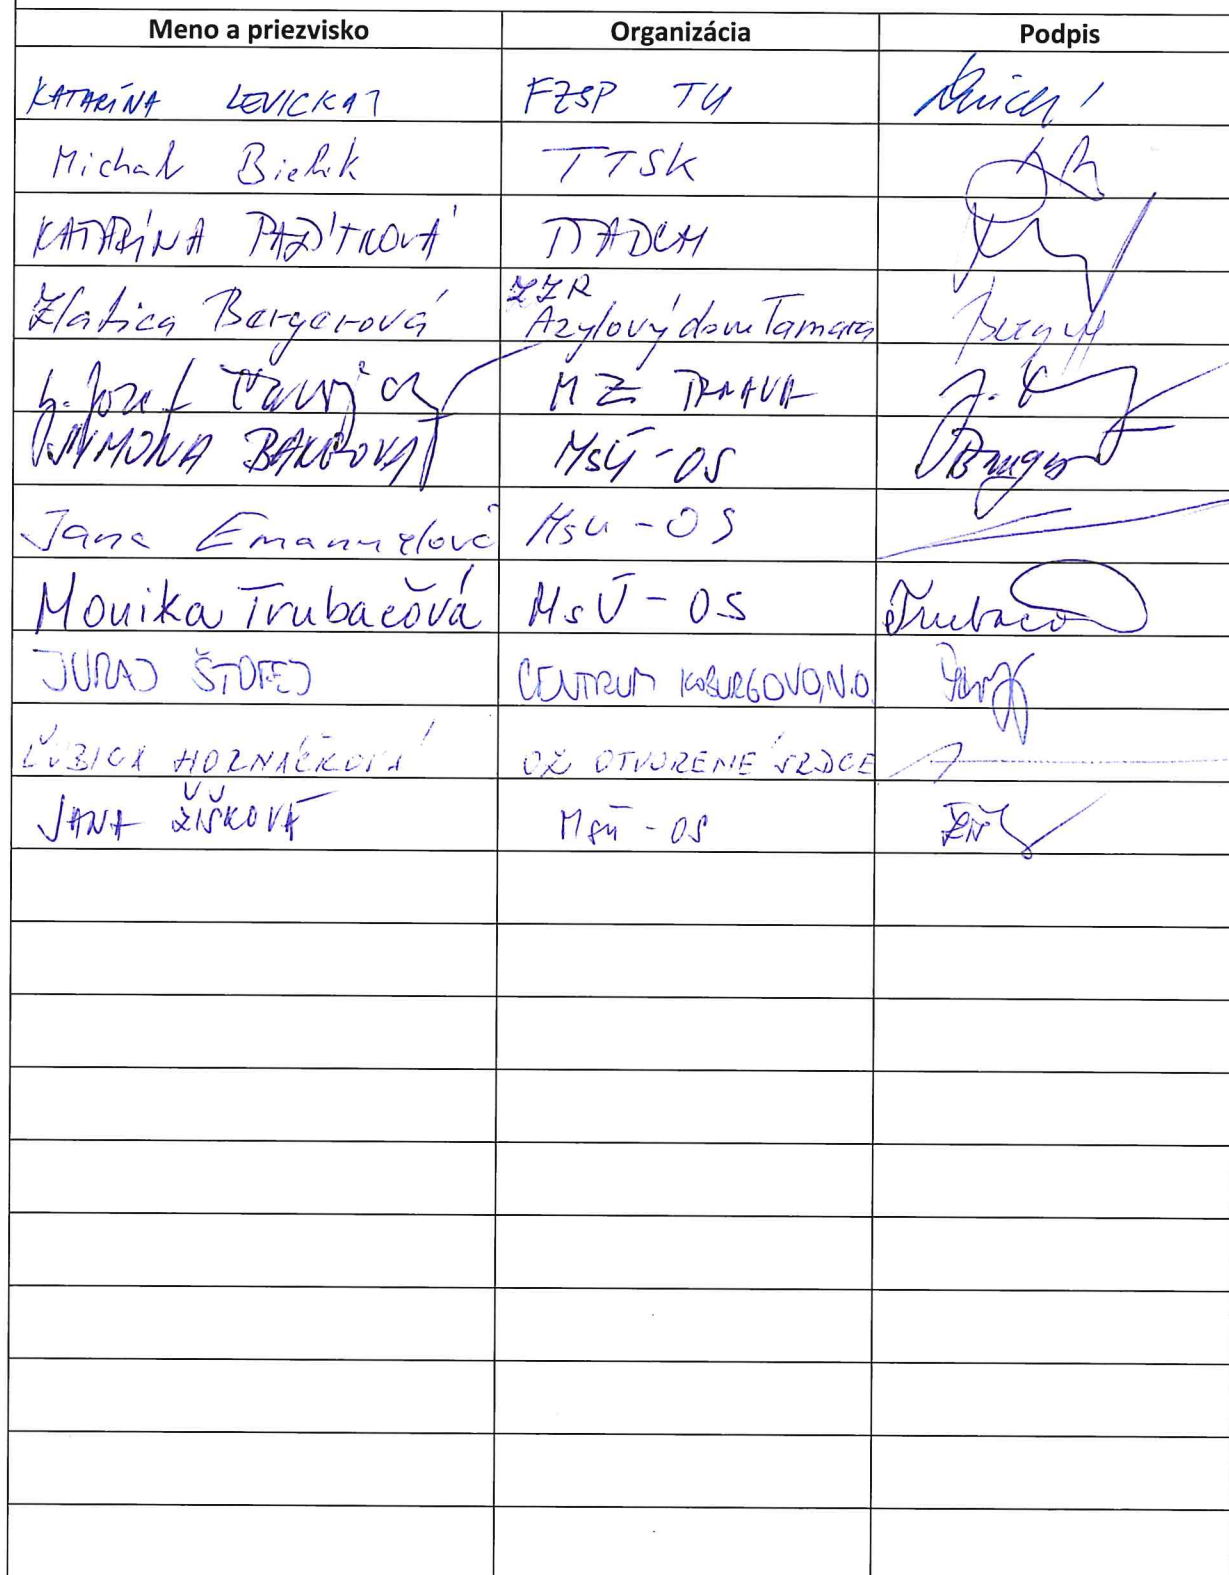 Meno a priezvisko Organizácia Podpis
KATARÍNA LEVICKÁ FZSP TU
Michal Bielik TTSK
KATARÍNA PAŽITKOVÁ TTADCH
Zlatica Bergerová ZZR Azylový dom Tamara
Jozef MZ TRNAVA
SYMONA MsÚ - OS
Jana Emanuelová MsU - OS
Monika Trubačová MsÚ - OS Trubačo
JURAJ ŠTOFEJ CENTRUM KOBURGOVO, N.O.
ĽUBICA HORNÁČKOVÁ OZ OTVORENÉ SRDCE
JANA ŽIŠKOVÁ MsÚ - OS